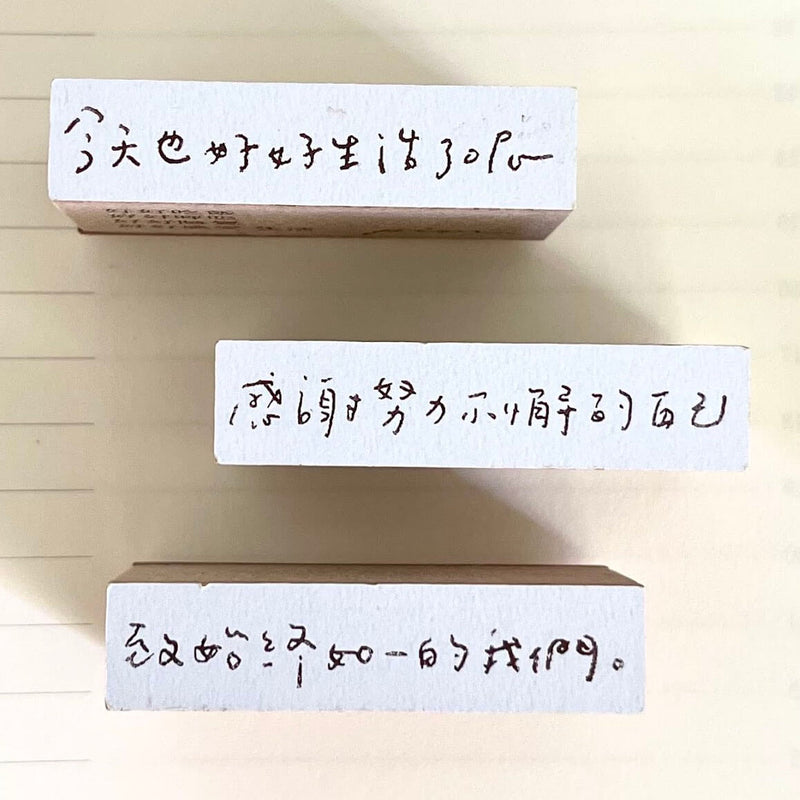 今天也好好生活了吧
感謝努力不懈的自己
致始終如一的我們。